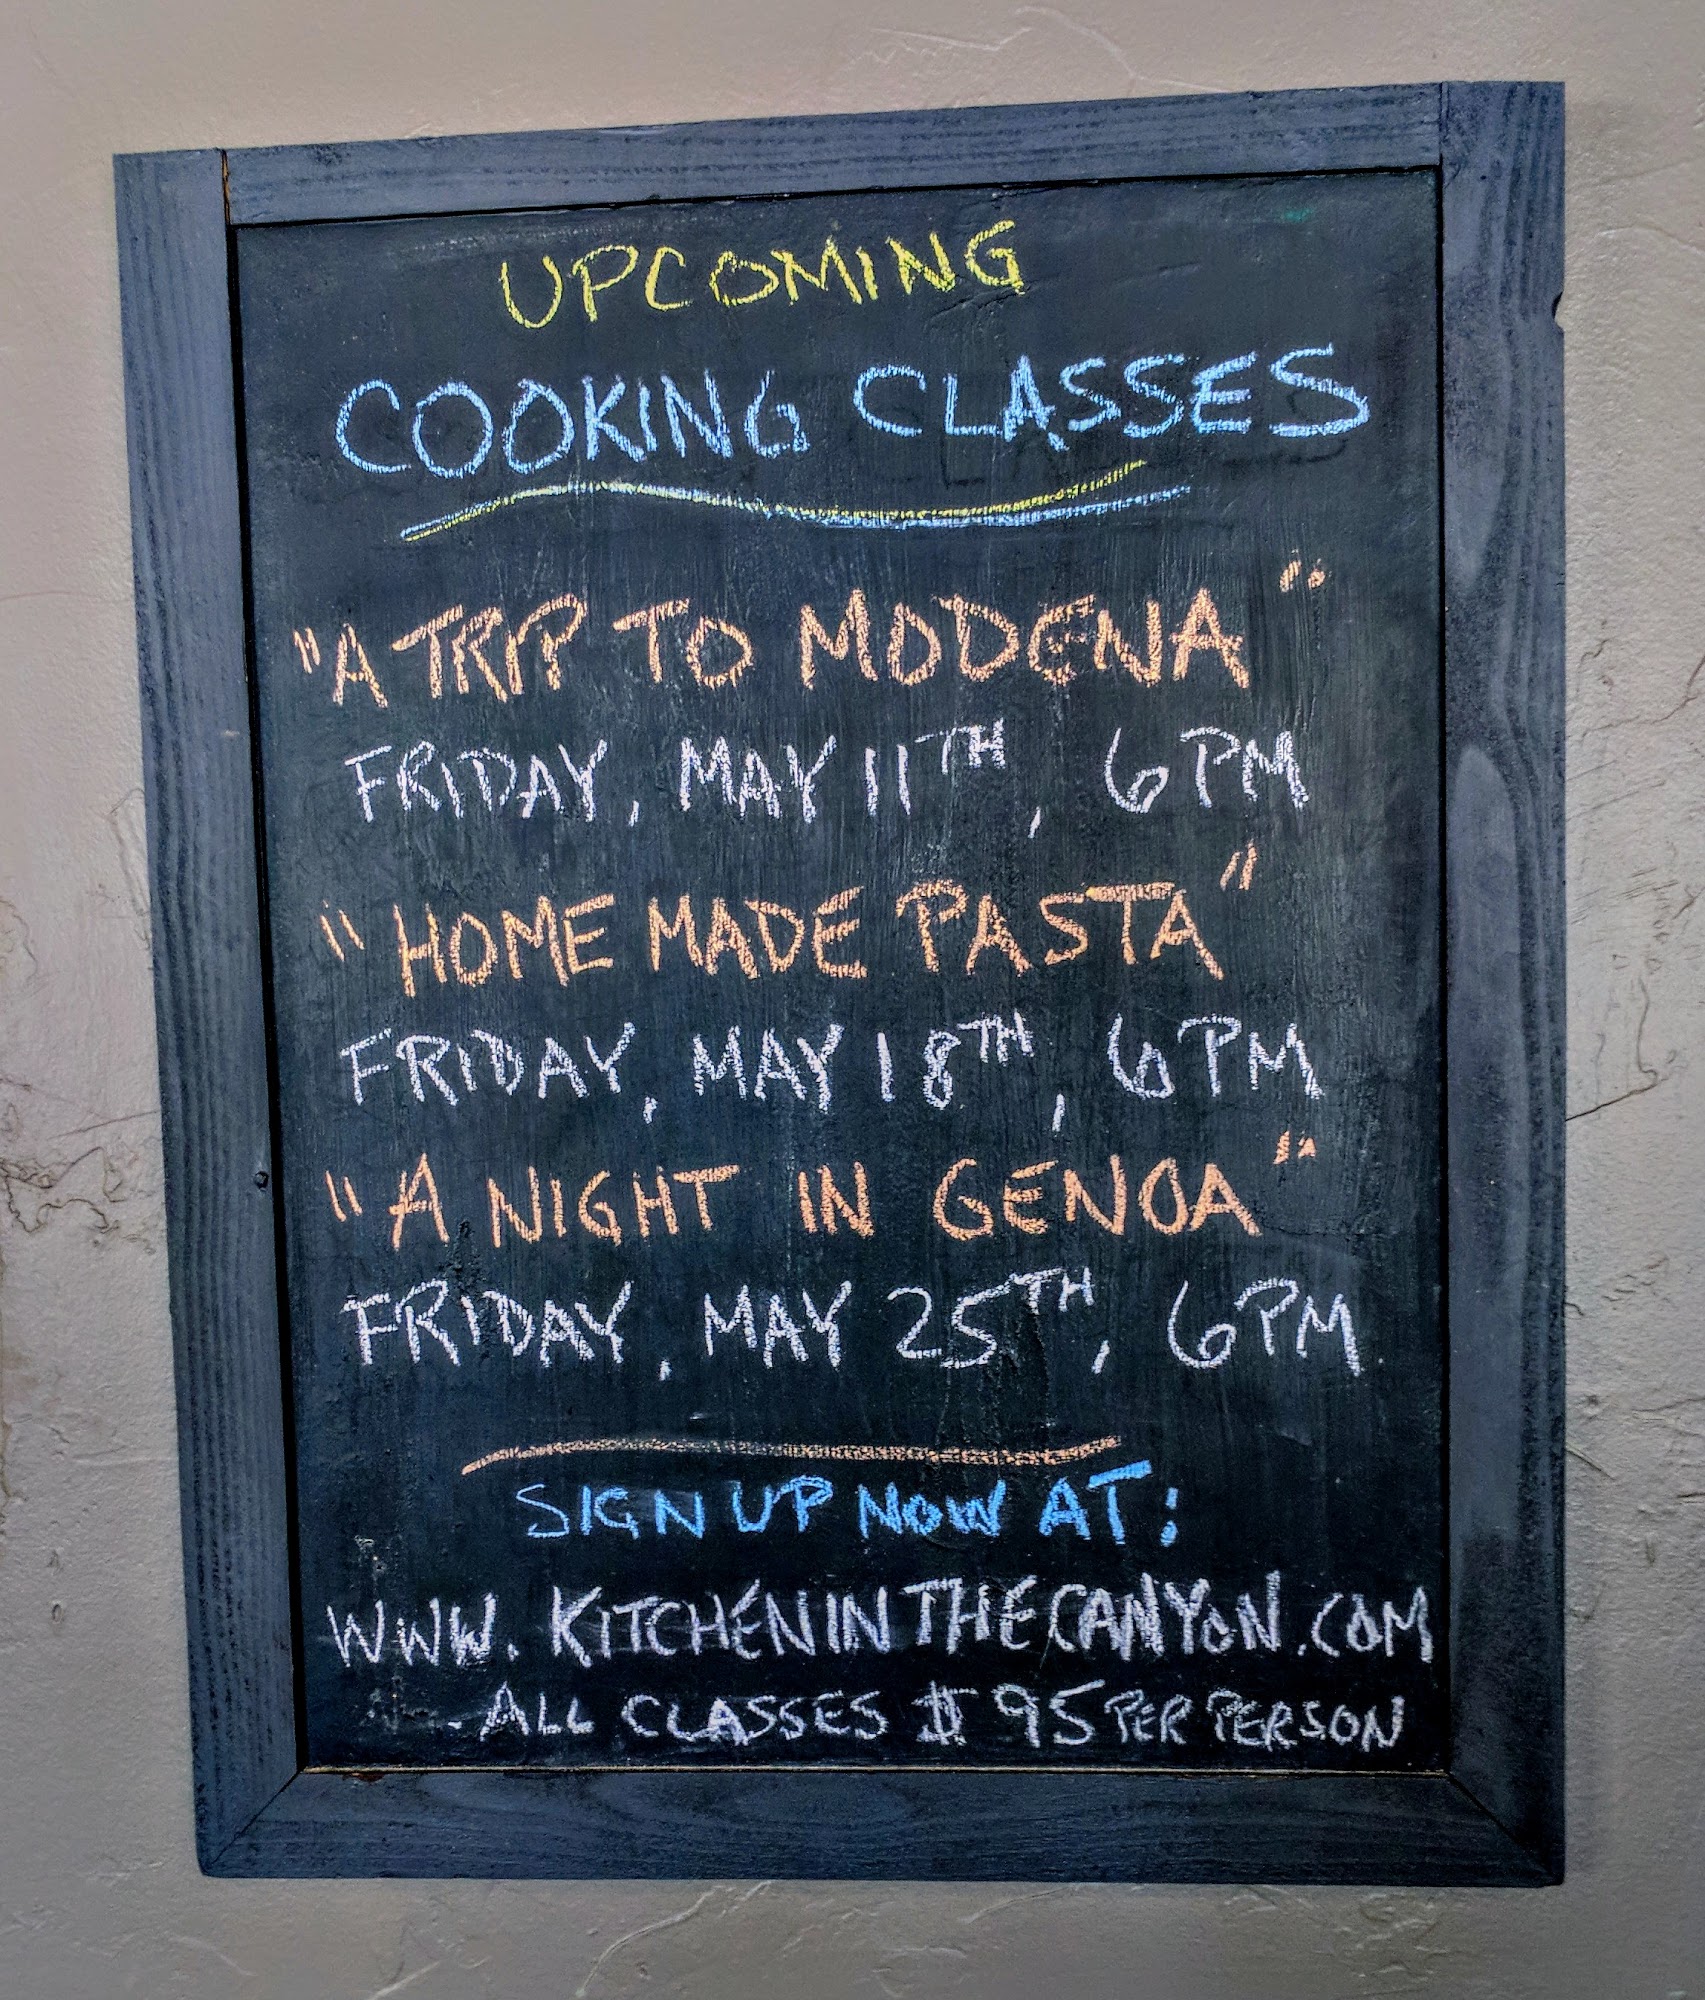 UPCOMING
COOKING CLASSES
"A TRIP TO MODENA"
FRIDAY, MAY 11TH, 6PM
"HOME MADE PASTA"
FRIDAY, MAY 18TH, 6PM
"A NIGHT IN GENOA"
FRIDAY, MAY 25TH, 6PM
SIGN UP NOW AT:
WWW.KITCHENINTHECANYON.COM
ALL CLASSES $95 PER PERSON